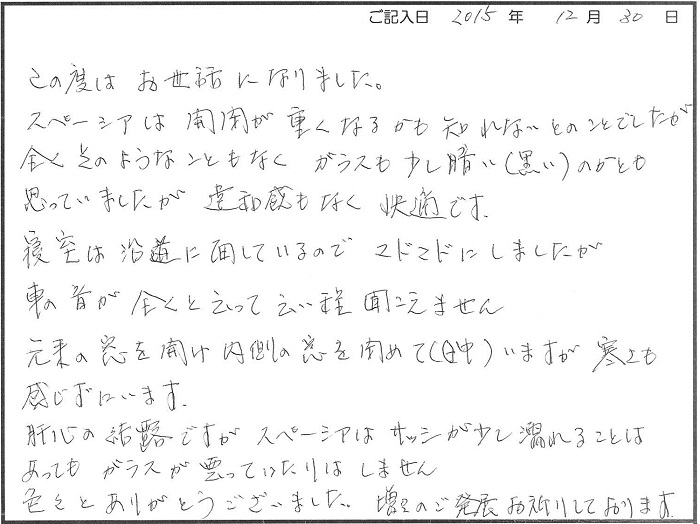 ご記入日 2015 年 12 月 30 日
この度は お世話になりました。
スペーシアは 開閉が 重くなるかも 知れないとのことでしたが
全く そのようなこともなく ガラスも 少し暗い(黒い)のかとも
思っていましたが 違和感もなく 快適です.
寝室は 沿道に面しているので マドマドにしましたが
車の音が 全くと云って云い程 聞こえません
元来の窓を開け 内側の窓を閉めて(日中)いますが 寒さも
感じずにいます.
肝心の結露ですが スペーシアは サッシが少し濡れることは
あっても ガラスが曇っていたりは しません
色々とありがとうございました。 増々のご発展お祈りしております.